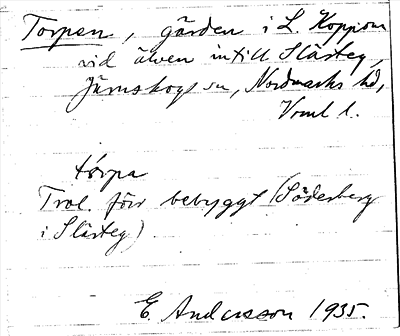 Torpen, gården i L. Koppom
vid älven intill Slästeg,
Järnskogs sn, Nordmarks hd,
Vrml l.
tórpa
Trol. förr bebyggt (Söderberg
i Slästeg).
E. Andersson 1935.